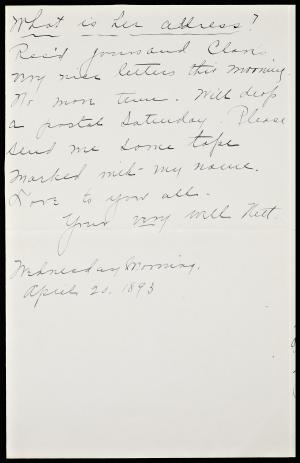 What is her address?
Rec'd yours and Clara
very nice letters this morning.
No more time. Will drop
a postal Saturday. Please
send me some tape
marked with my name.
Love to you all.
Your very well Nett.
Wednesday Morning.
April 20. 1893